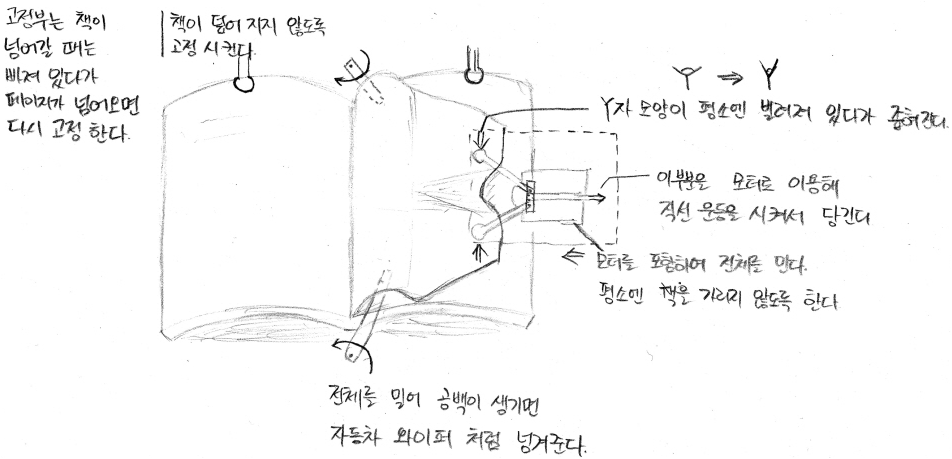 고정부는 책이
넘어갈 때는
빠져 있다가
페이지가 넘어오면
다시 고정 한다.
책이 덮어 지지 않도록
고정 시킨다.
Y자 모양이 평소엔 벌려져 있다가 좁혀진다.
이부분을 모터로 이용해
직선 운동을 시켜서 당긴다
모터를 포함하여 전체를 민다.
평소엔 책을 가리지 않도록 한다
전체를 밀어 공백이 생기면
자동차 와이퍼 처럼 넘겨준다.